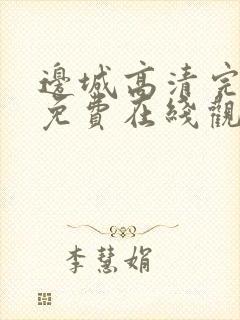 邊城高清完
免費在綫觀
李慧娟